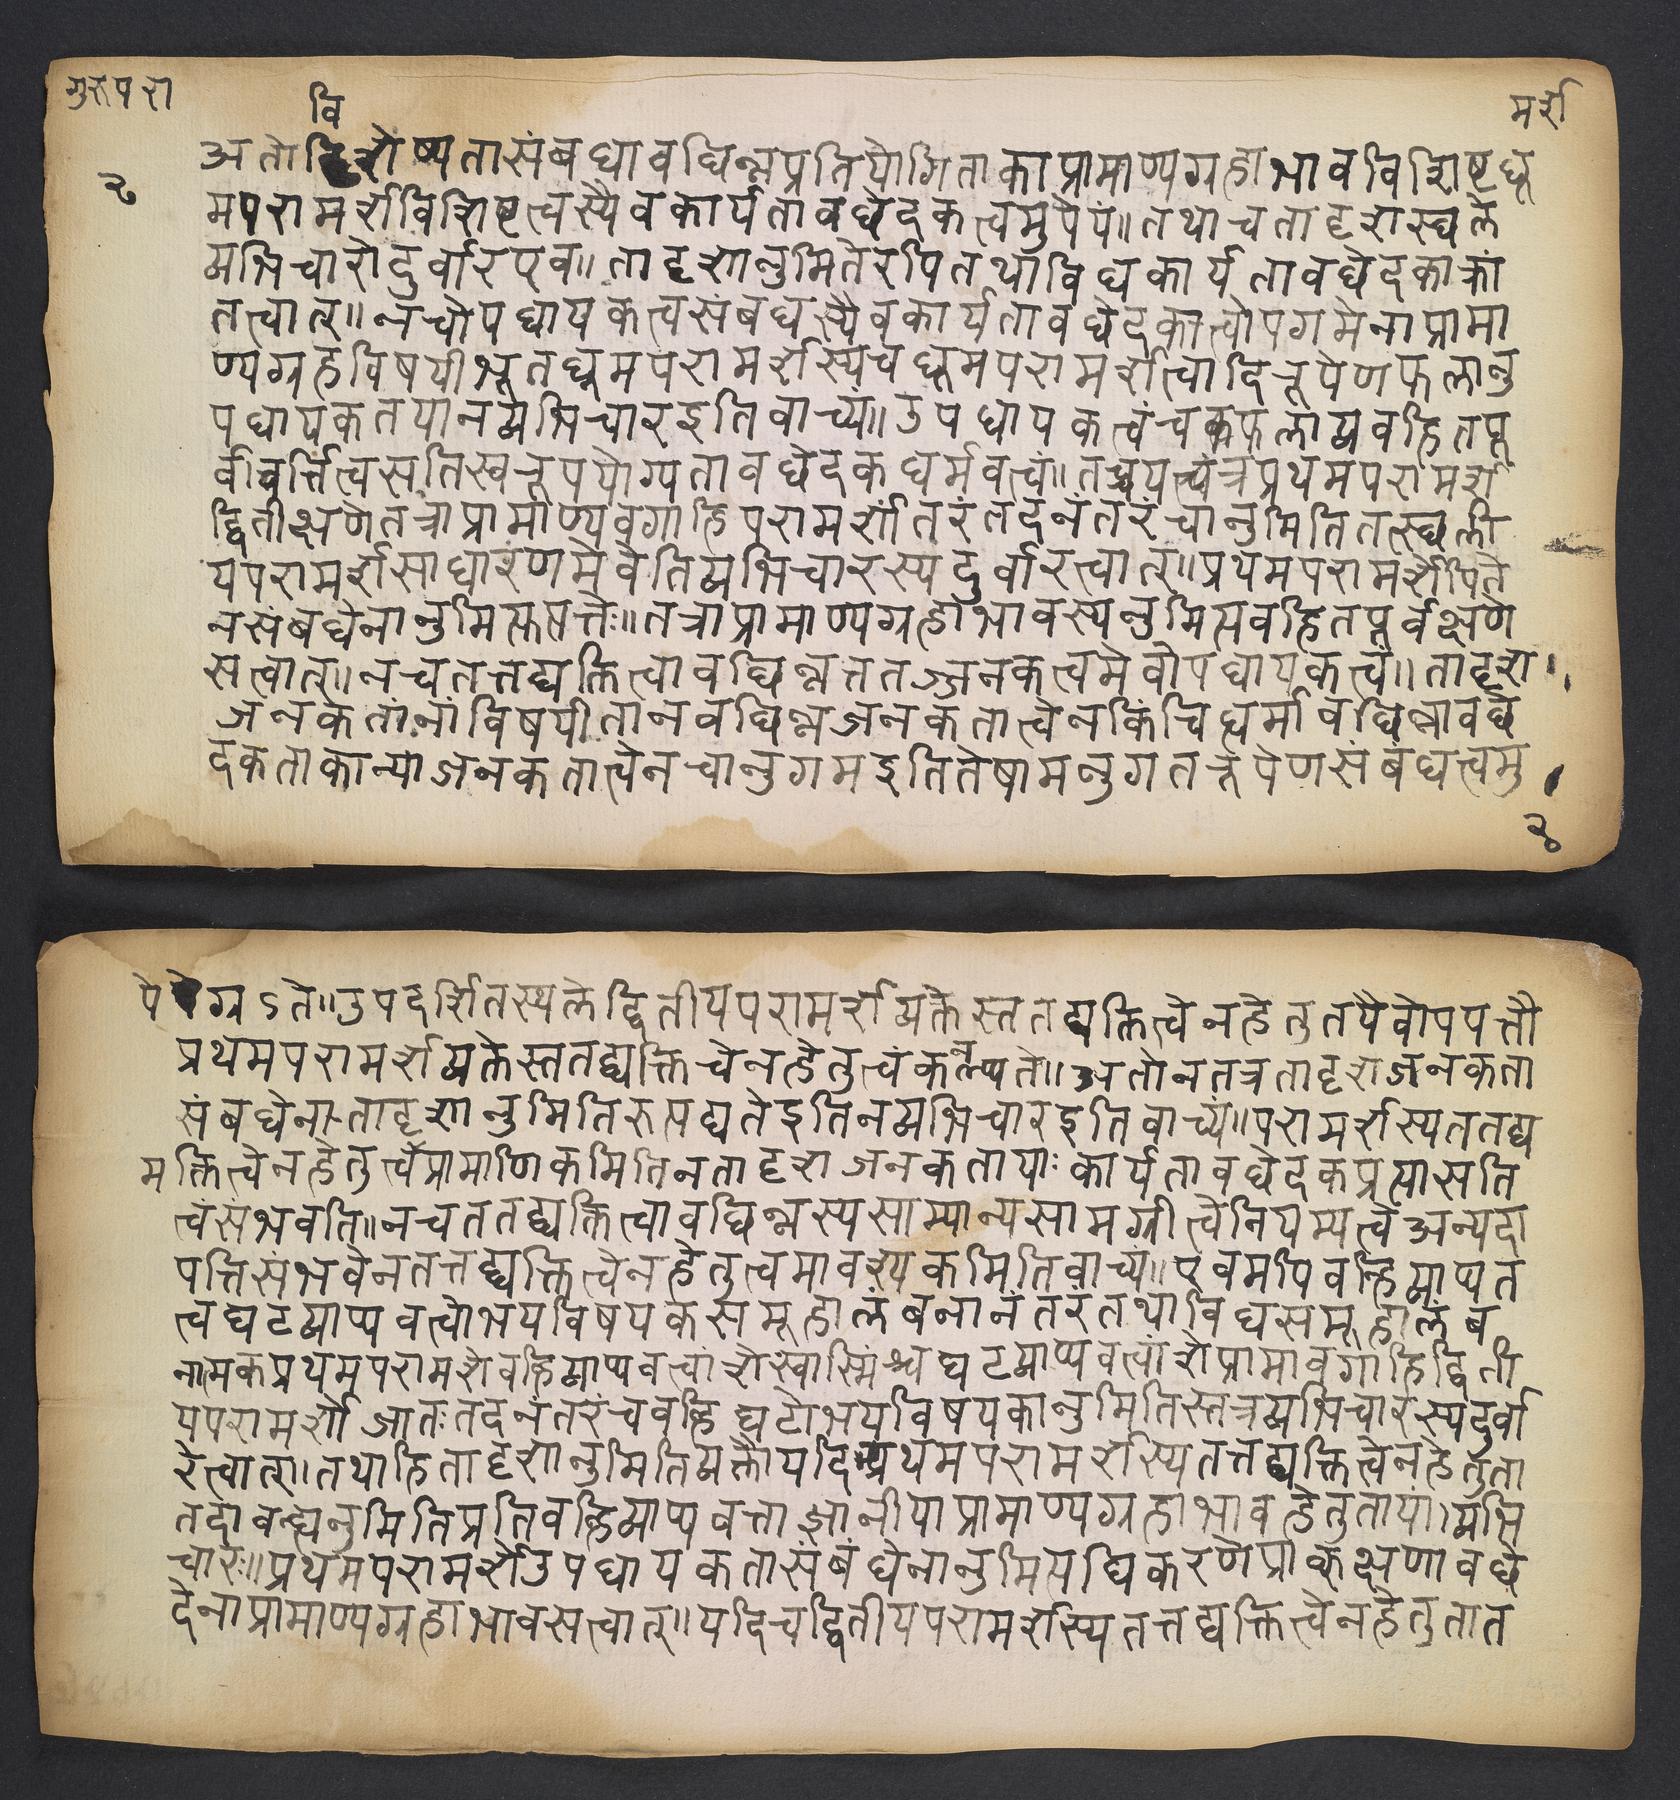 गुरूपरा
मर्श
वि
अतो शेष्यतासंबधावछिन्नप्रतियोगिताकाप्रामाण्यग्रहाभावविशिष्टधू
२
मपरामर्शविशिष्टत्वस्यैवकार्यतावछेदकत्वमुपेयं॥तथाचतादृशस्छले
व्यभिचारोदुर्वारएव॥तादृशानुमितेरपितथाविधकार्यतावछेदकाक्रां
तत्वात्॥नचोपधायकत्वसंबधस्यैवकार्यतावछेदकात्वोपगमेनाप्रामा
ण्यग्रहविषयीभूतधूमपरामर्शस्यचधूमपरामर्शत्वादिरूपेणफलानु
पधायकतयानव्यभिचारइतिवाच्यं॥उपधायकत्वंचकफलाव्यवहितपू
र्वविर्त्तित्वसतिस्वरूपयोग्यतावछेदकधर्मवत्वं॥ प्रथमपरामर्श
द्वितीक्षणेतत्राप्रामाण्यवगाहिपरामर्शांतरंतदनंतरंचानुमितितत्स्छली
यपरामर्शसाधारणमेवेतिव्यभिचारस्यदुर्वारत्वात्॥प्रथमपरामर्शेपिते
नसंबधेनानुमित्युत्पत्तेः॥तत्राप्रामाण्यग्रहाभावस्यनुमित्यवहितपूर्वक्षणे
सत्वात्॥नचतत्तद्यक्तित्वावछिन्नत्ततज्जनकत्वमेवोपधायकत्वं॥तादृश
जनकतानांविषयीतानवछिन्नजनकतात्वेनकिंचिधर्मावछिन्नावछे
दकताकान्याजनकतात्वेनचानुगमइतितेषामनुगतरूपेणसंबधत्वमु
२
पे ग्रऽते॥उपदर्शितस्यलेद्वितीयपरामर्शव्यक्तेस्ततद्यक्तित्वेनहेतुतयैवोपपत्तौ
प्रथमपरामर्शव्यक्तेस्ततद्यक्तिचेनहेतुत्वंकनल्प्यते॥अतोनतत्रतादृशजनकता
संबधेनातादृशानुमितिरुत्पद्यतेइतिनव्यभिचारइतिवाच्यं॥परामर्शस्यततद्य
मक्तित्वेनहेतुत्वेप्रामाणिकमितिनतादृशजनकतायाःकार्यतावछेदकप्रत्यासति
त्वंसंभवति॥नचततद्यक्तित्वावछिन्नस्यसाम्यान्यसामग्रीत्वेनियम्यत्वेअन्यदा
पत्तिसंभवेनतत्तद्यक्तित्वेनहेतुत्वमावश्यकमितिवाच्यं॥एवमपिवन्हिव्याप्यत
त्वघटव्याप्यवत्वोभयविषयकसमूहालंबनानंतरंतथाविधसमूहालंब
नात्मकप्रथमपरामर्शेवह्निव्याप्यवत्वांशेस्वास्मिंश्चघटव्याप्यवत्वांशेप्रामावगाहिद्विती
यपरामर्शोजातःतदनंतरंचवह्निघटोभयविषयकानुमितिस्तत्रव्यभिचारस्यदुर्वा
रेत्वात्॥तथाहितादृशानुमितिव्यक्तौयदिप्रथमपरामर्शस्यितत्तद्यक्तित्वेनहेतुता
तदावन्ह्यनुमितिप्रतिवह्निव्याप्यवत्ताज्ञानीयाप्रामाण्यग्रहाभावहेतुतायां।व्यभि
चारः॥प्रथमपरामर्शेउपधायकतासंबंधेनानुमित्यधिकरणेप्राक्क्षणावछे
देनाप्रामाण्यग्रहाभावसत्वात्॥यदिचद्वितीयपरामर्शस्यितत्तद्यक्तित्वेनहेतुतात